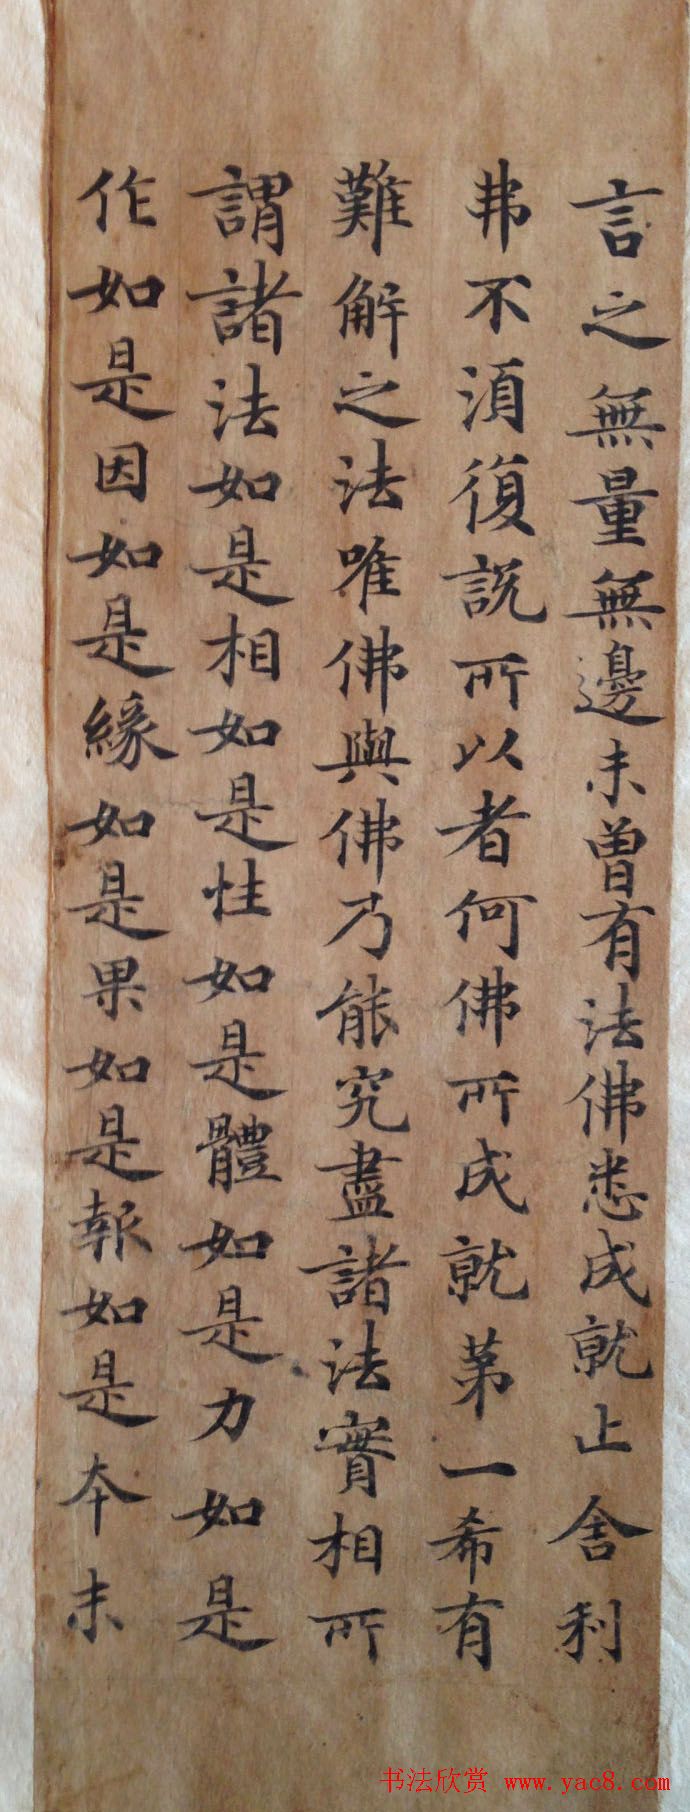 言之無量無邊未曾有法佛悉成就止舍利
弗不須復説所以者何佛所成就第一希有
難解之法唯佛與佛乃能究盡諸法實相所
謂諸法如是相如是性如是體如是力如是
作如是因如是緣如是果如是報如是本末
书法欣赏 www.yac8.com